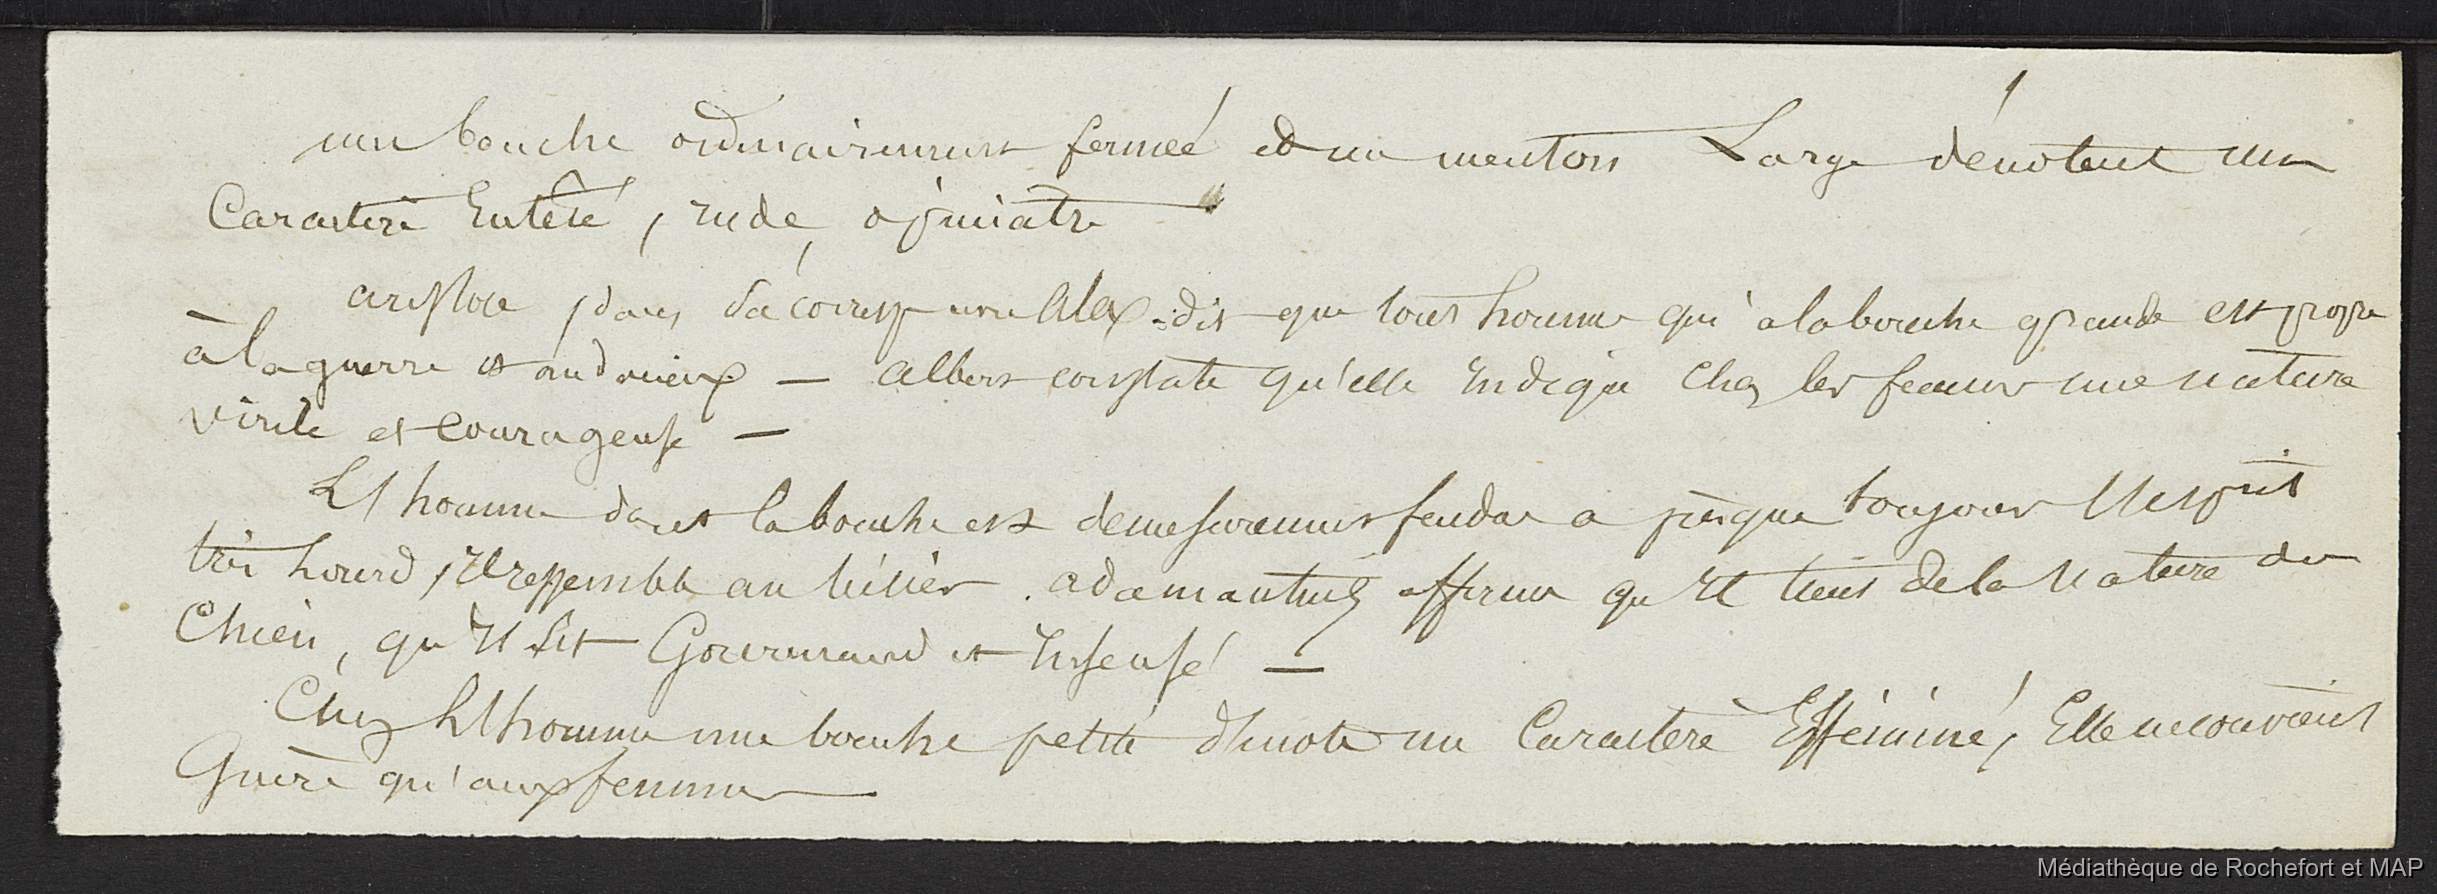 une bouche ordinairement fermeé et un menton Large dénotent un
Caractere Entêté, rude, opiniatre
aristote, dans sa corresp Alex. dit que tout homme qui a la bouche grande est propre
à la guerre et audacieux — albert constate qu'elle Indique Chez les femmes une nature
virile et courageuse —
L'homme dont la bouche est demesurement fendue a presque toujours l'esprit
très lourd, Il ressemble au bélier. adamantius affirme qu'Il tient de la nature du
Chien, qu'Il est Gourmand et Insensé —
Chez L'homme une bouche petite dénote un Caractere Efféminé, Elle ne convient
Guère qu'aux femmes
Médiathèque de Rochefort et MAP